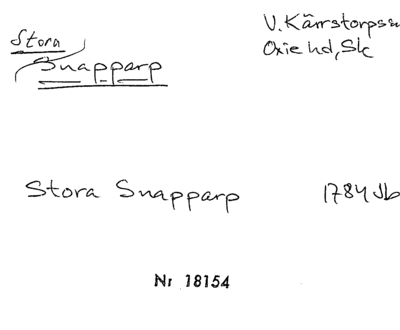 Stora
Snapparp
V. Kärrstorps sn
Oxie hd, Sk
Stora Snapparp 1784 Jb
Nr 18154